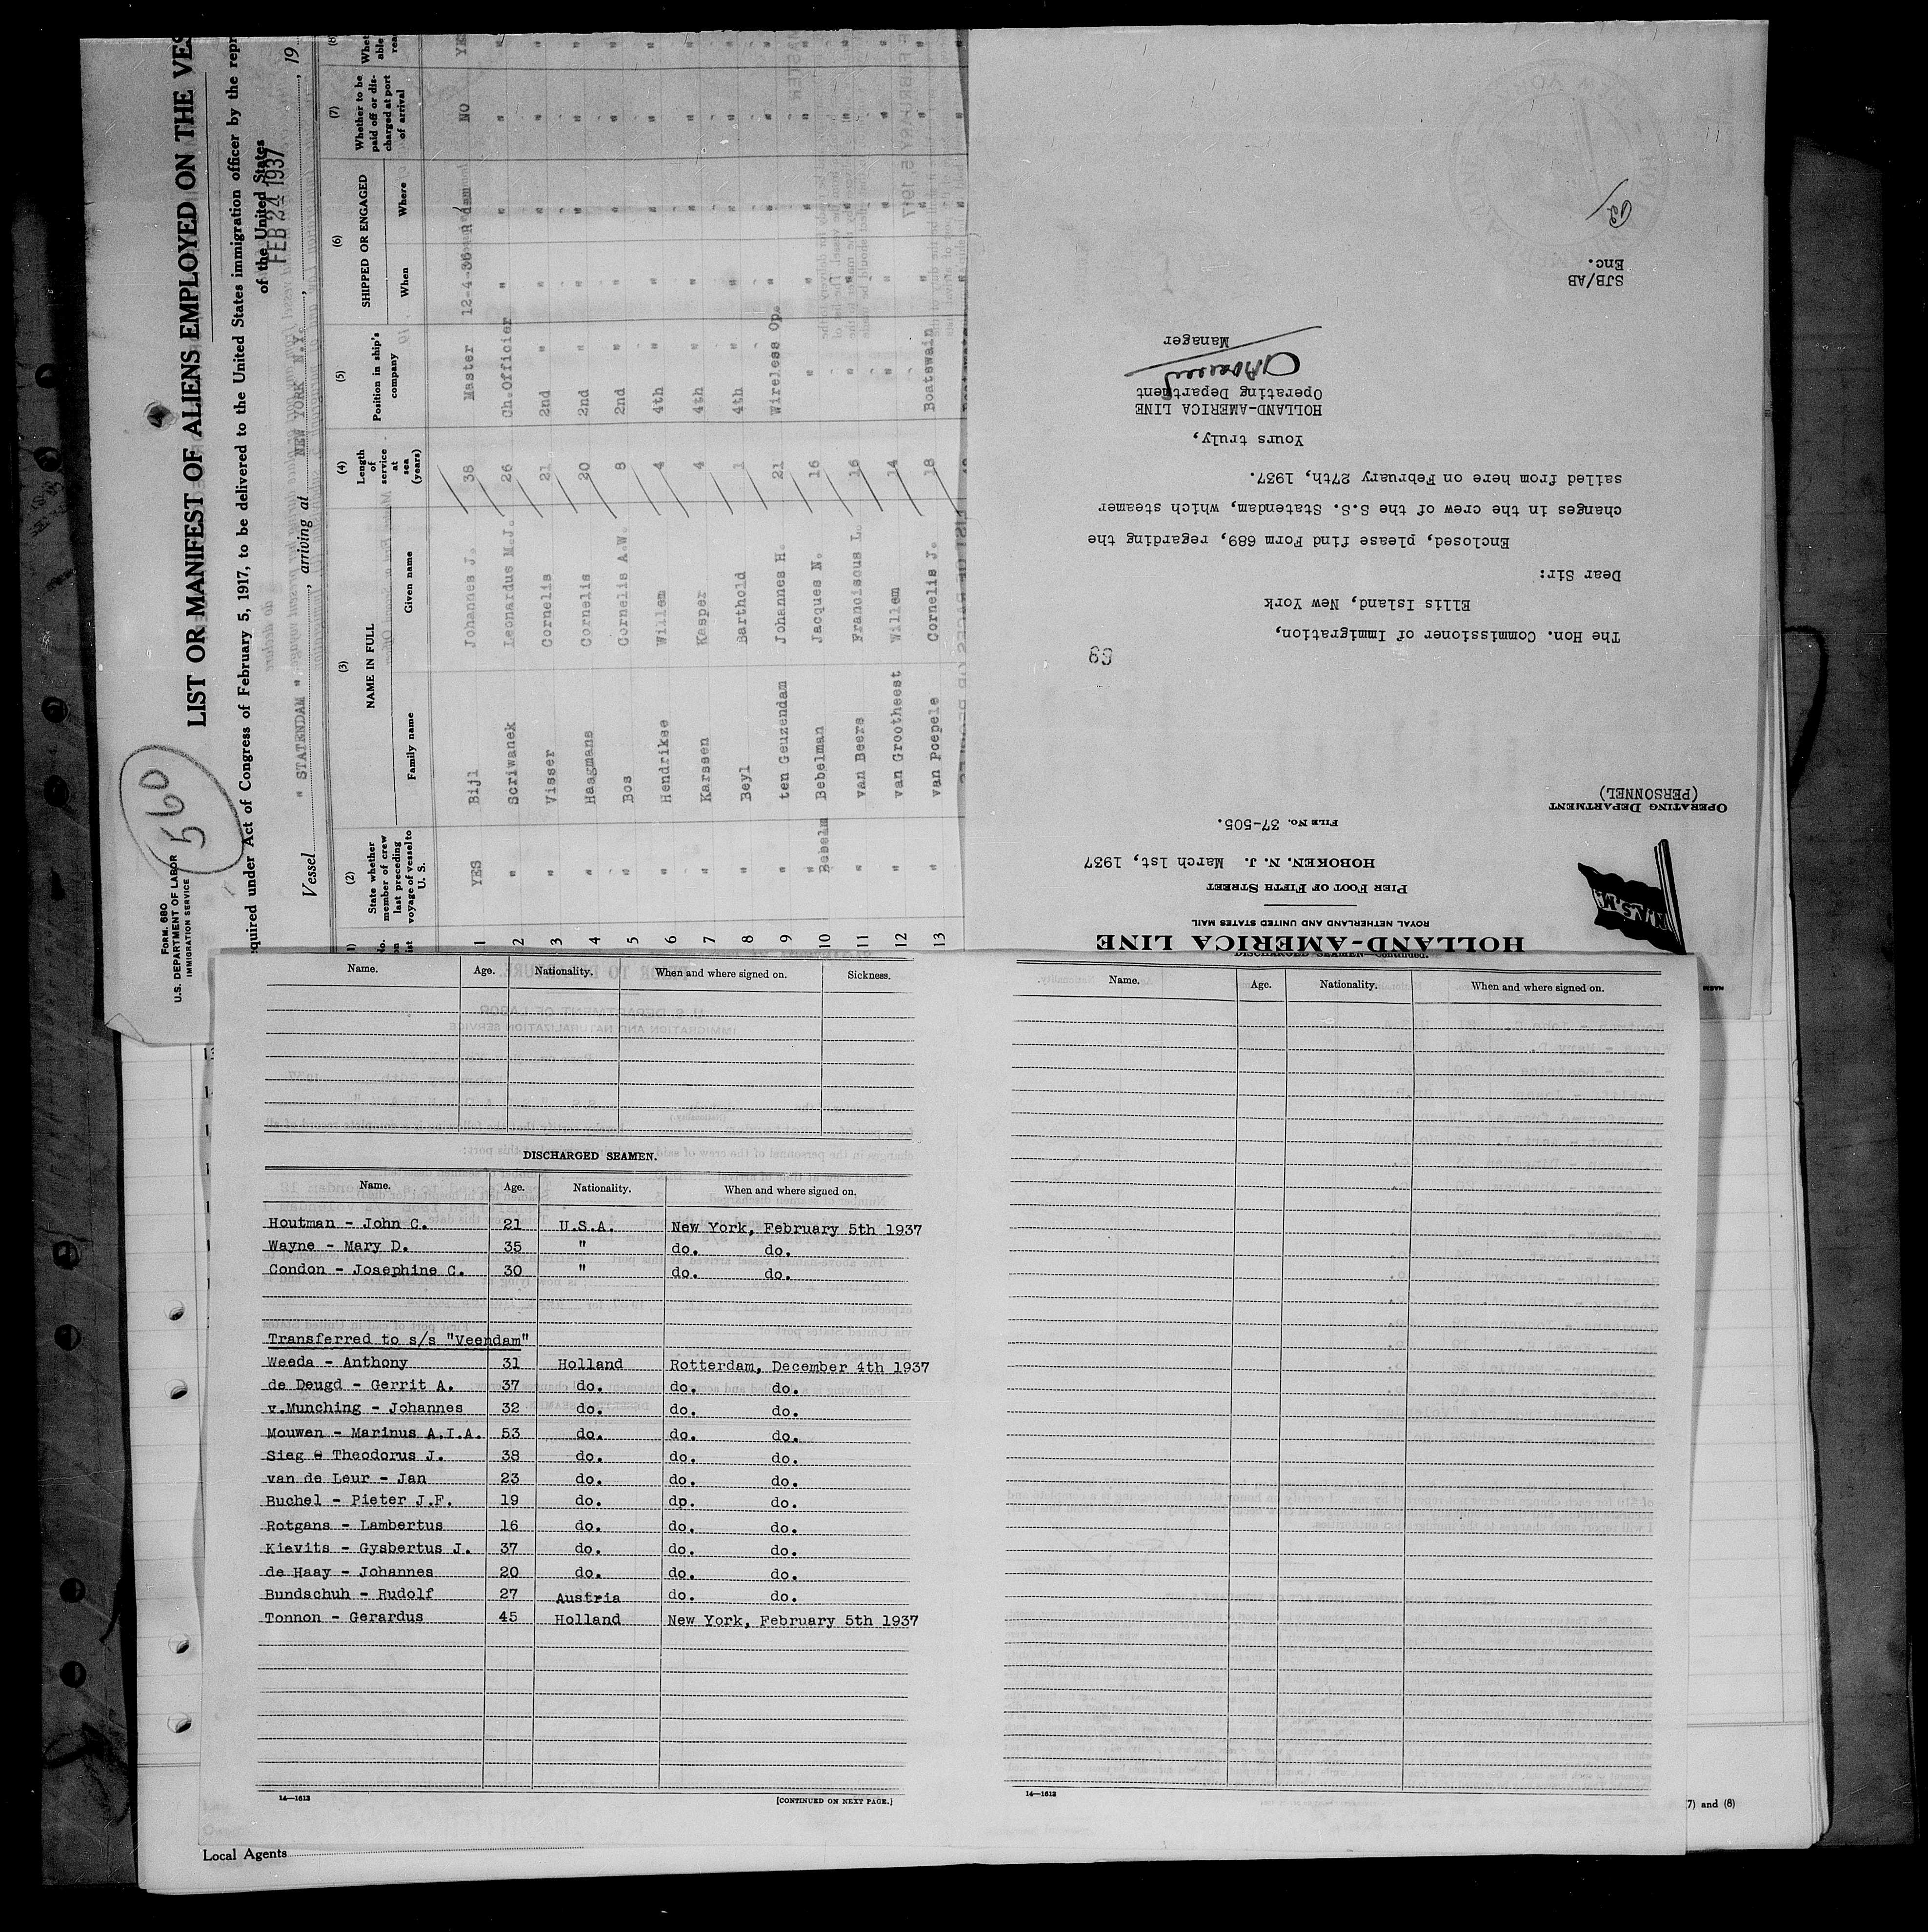 FORM 680
U.S. DEPARTMENT OF LABOR
IMMIGRATION SERVICE
560
LIST OR MANIFEST OF ALIENS EMPLOYED ON THE VES
equired under Act of Congress of February 5, 1917, to be delivered to the United States immigration officer by the repr
of the United States
FEB 24 1937
Vessel " STATENDAM " , arriving at NEW YORK N.Y. , , 19
(2) (3) (4) (5) (6) (7) (8)
State whether member of crew last preceding voyage of vessel to U. S.
NAME IN FULL
Family name Given name
Length of service at sea (years)
Position in ship's company
SHIPPED OR ENGAGED
When Where
Whether to be paid off or discharged at port of arrival
1 YES Bijl Johannes J. 38 Master 12-4-36 R'dam NO YE
2 " Scriwanek Leonardus M.J. 26 Ch.Officier " " " "
3 " Visser Cornelis 21 2nd " " " " "
4 " Haagmans Cornelis 20 2nd " " " " "
5 " Bos Cornelis A.W. 8 2nd " " " " "
6 " Hendrikse Willem 4 4th " " " " "
7 " Karssen Kasper 4 4th " " " " "
8 " Beyl Barthold 1 4th " " " " "
9 " ten Geuzendam Johannes H. 21 Wireless Op. " " " "
10 " Bebelman Jacques N. 16 " " " " "
11 " van Beers Franciscus L. 16 " " " " "
12 " van Grootheest Willem 14 " " " " "
13 " van Poepele Cornelis J. 18 Boatswain " " " "
HOLLAND-AMERICA LINE
ROYAL NETHERLAND AND UNITED STATES MAIL
PIER FOOT OF FIFTH STREET
HOBOKEN, N. J. March 1st, 1937
FILE NO. 37-505.
N.A.S.M.
OPERATING DEPARTMENT
(PERSONNEL)
69
The Hon. Commissioner of Immigration,
Ellis Island, New York
Dear Sir:
Enclosed, please find Form 689, regarding the
changes in the crew of the S.S. Statendam, which steamer
sailed from here on February 27th, 1937.
Yours truly,
HOLLAND-AMERICA LINE
Operating Department
Manager
SJB/AB
Enc.
Name. Age. Nationality. When and where signed on. Sickness.
DISCHARGED SEAMEN.
Name. Age. Nationality. When and where signed on.
Houtman - John C. 21 U.S.A. New York, February 5th 1937
Wayne - Mary D. 35 " do. do.
Condon - Josephine C. 30 " do. do.
Transferred to s/s "Veendam"
Weeda - Anthony 31 Holland Rotterdam, December 4th 1937
de Deugd - Gerrit A. 37 do. do. do.
v.Munching - Johannes 32 do. do. do.
Mouwen - Marinus A.I.A. 53 do. do. do.
Sieg - Theodorus J. 38 do. do. do.
van de Leur - Jan 23 do. do. do.
Buchel - Pieter J.F. 19 do. dp. do.
Rotgans - Lambertus 16 do. do. do.
Kievits - Gysbertus J. 37 do. do. do.
de Haay - Johannes 20 do. do. do.
Bundschuh - Rudolf 27 Austria do. do.
Tonnon - Gerardus 45 Holland New York, February 5th 1937
14—1613
[CONTINUED ON NEXT PAGE.]
DISCHARGED SEAMEN—Continued.
Name. Age. Nationality. When and where signed on.
14—1613
7) and (8)
Local Agents